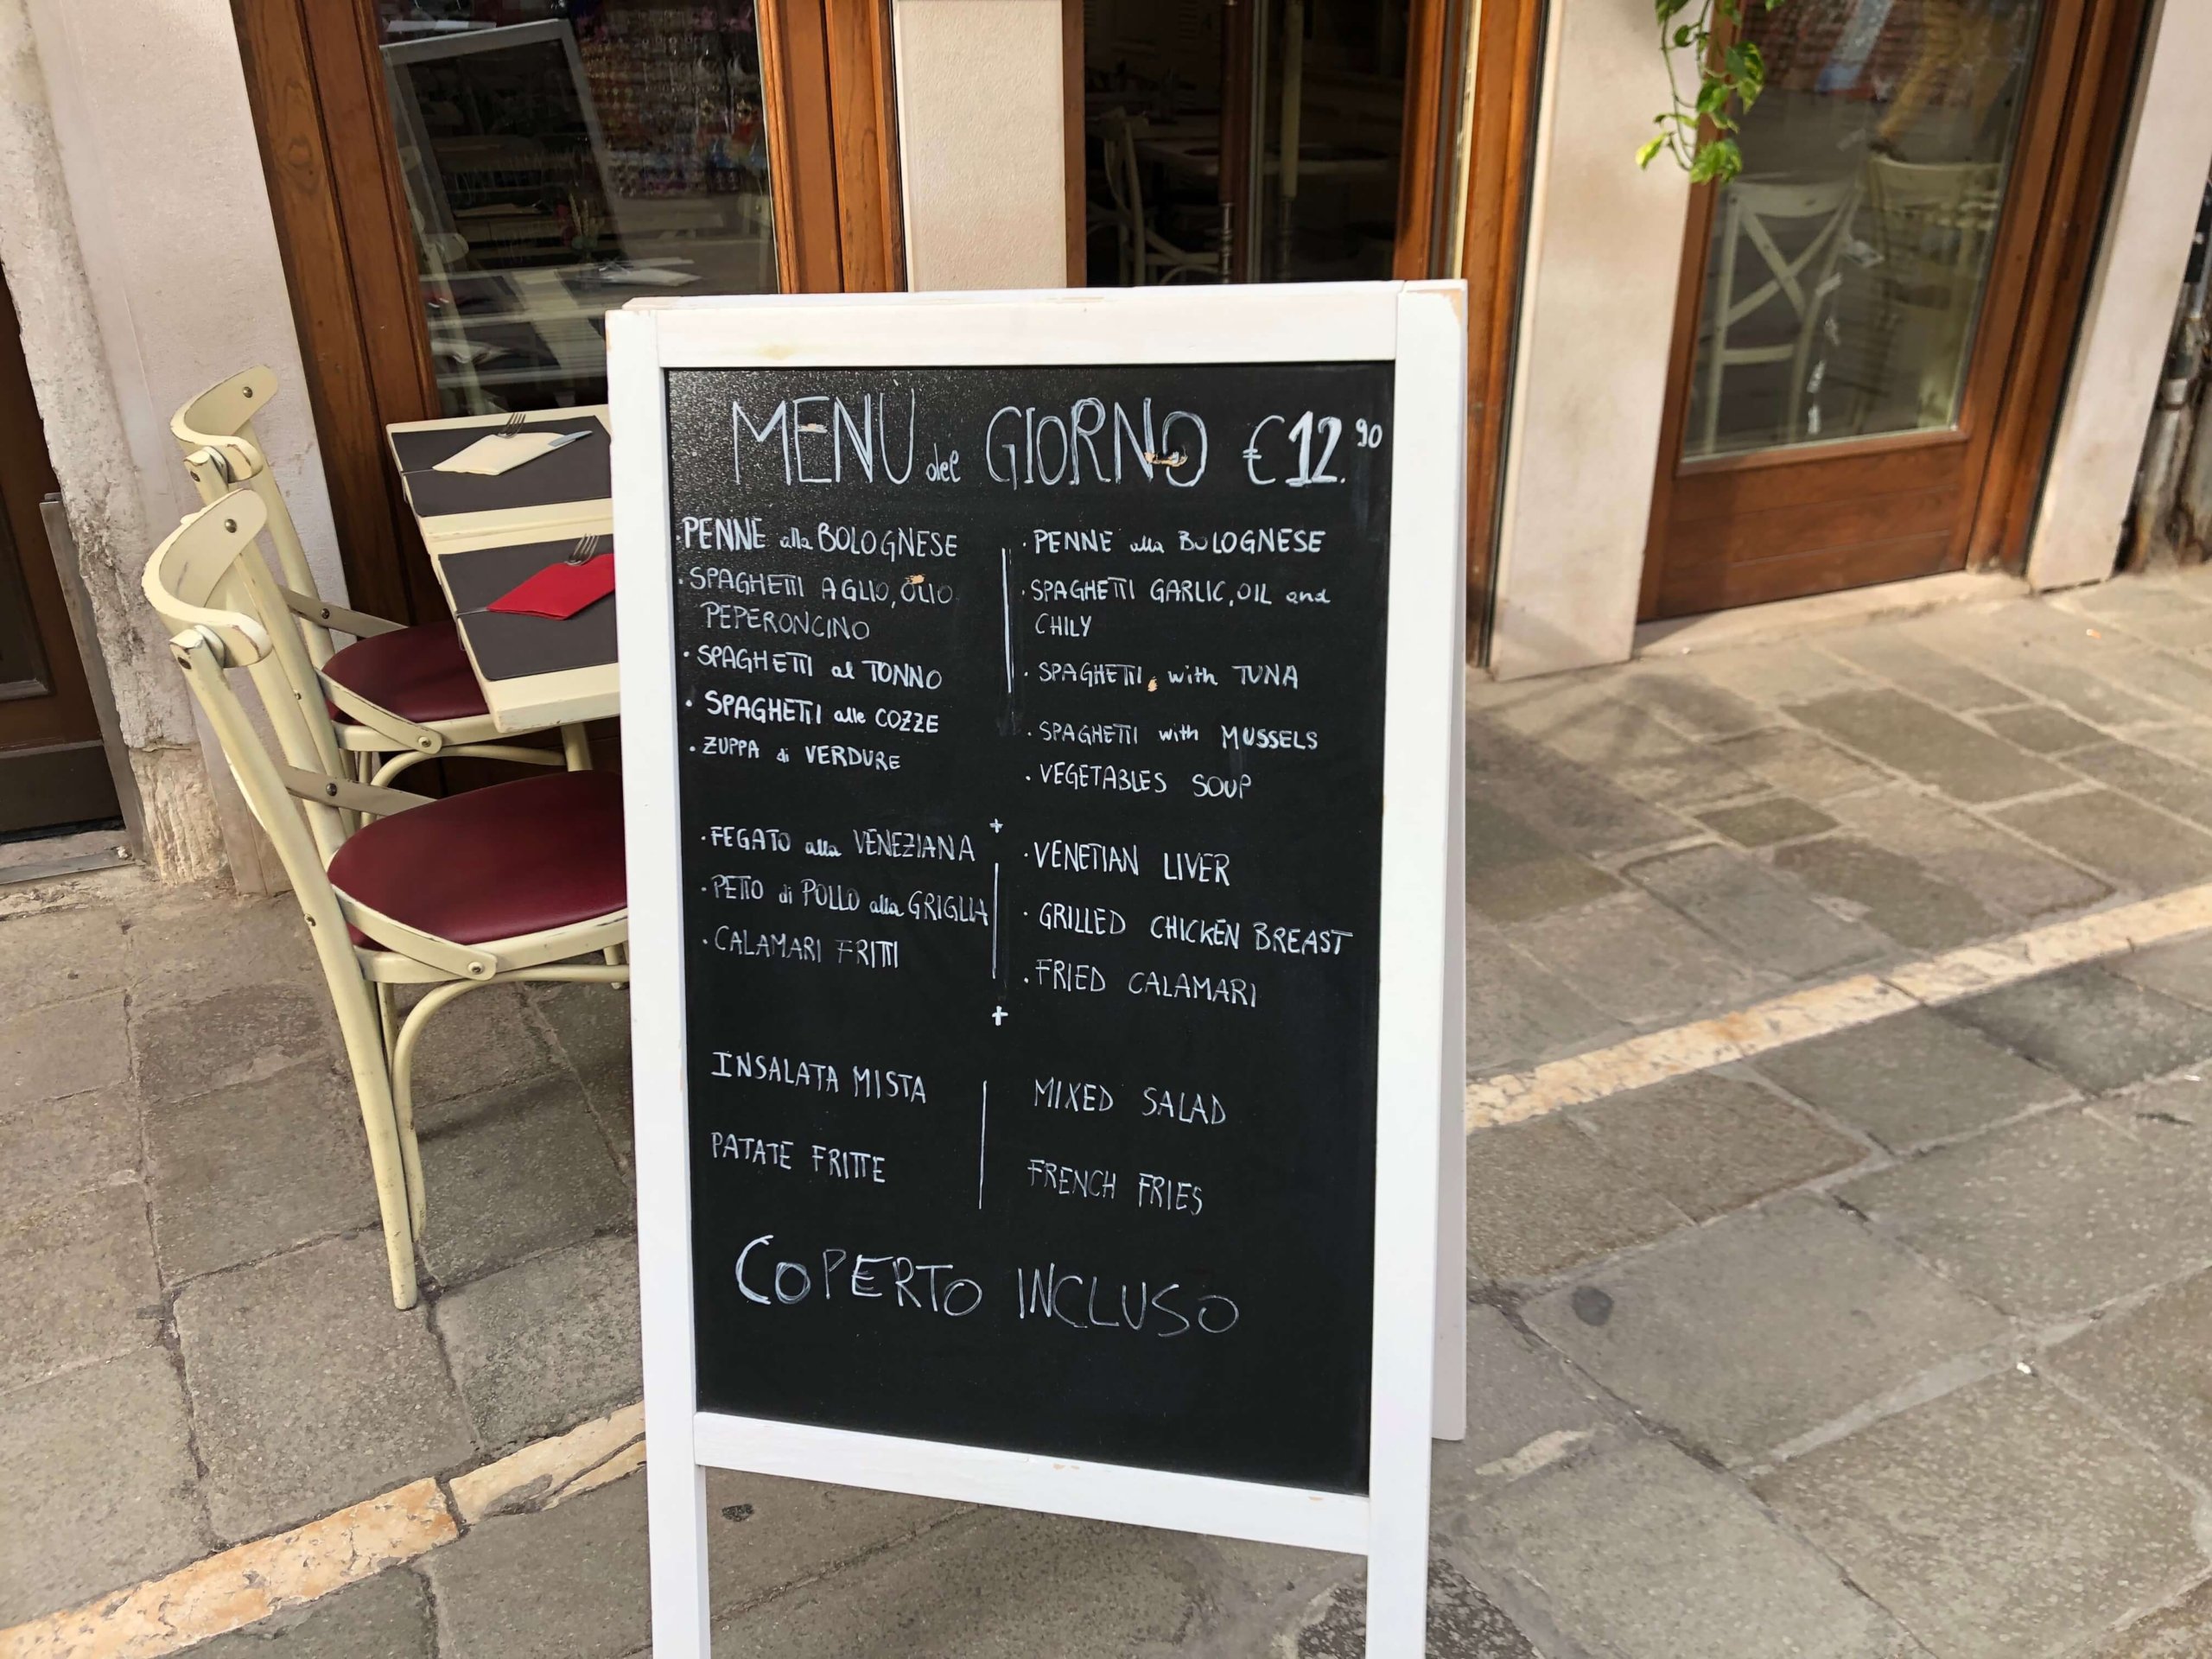 MENU del GIORNO €12.90
·PENNE alla BOLOGNESE
·SPAGHETTI AGLIO, OLIO
PEPERONCINO
·SPAGHETTI al TONNO
·SPAGHETTI alle COZZE
·ZUPPA di VERDURE
·PENNE alla BOLOGNESE
·SPAGHETTI GARLIC, OIL and
CHILY
·SPAGHETTI with TUNA
·SPAGHETTI with MUSSELS
·VEGETABLES SOUP
+
·FEGATO alla VENEZIANA
·PETTO di POLLO alla GRIGLIA
·CALAMARI FRITTI
·VENETIAN LIVER
·GRILLED CHICKEN BREAST
·FRIED CALAMARI
+
INSALATA MISTA
PATATE FRITTE
MIXED SALAD
FRENCH FRIES
COPERTO INCLUSO